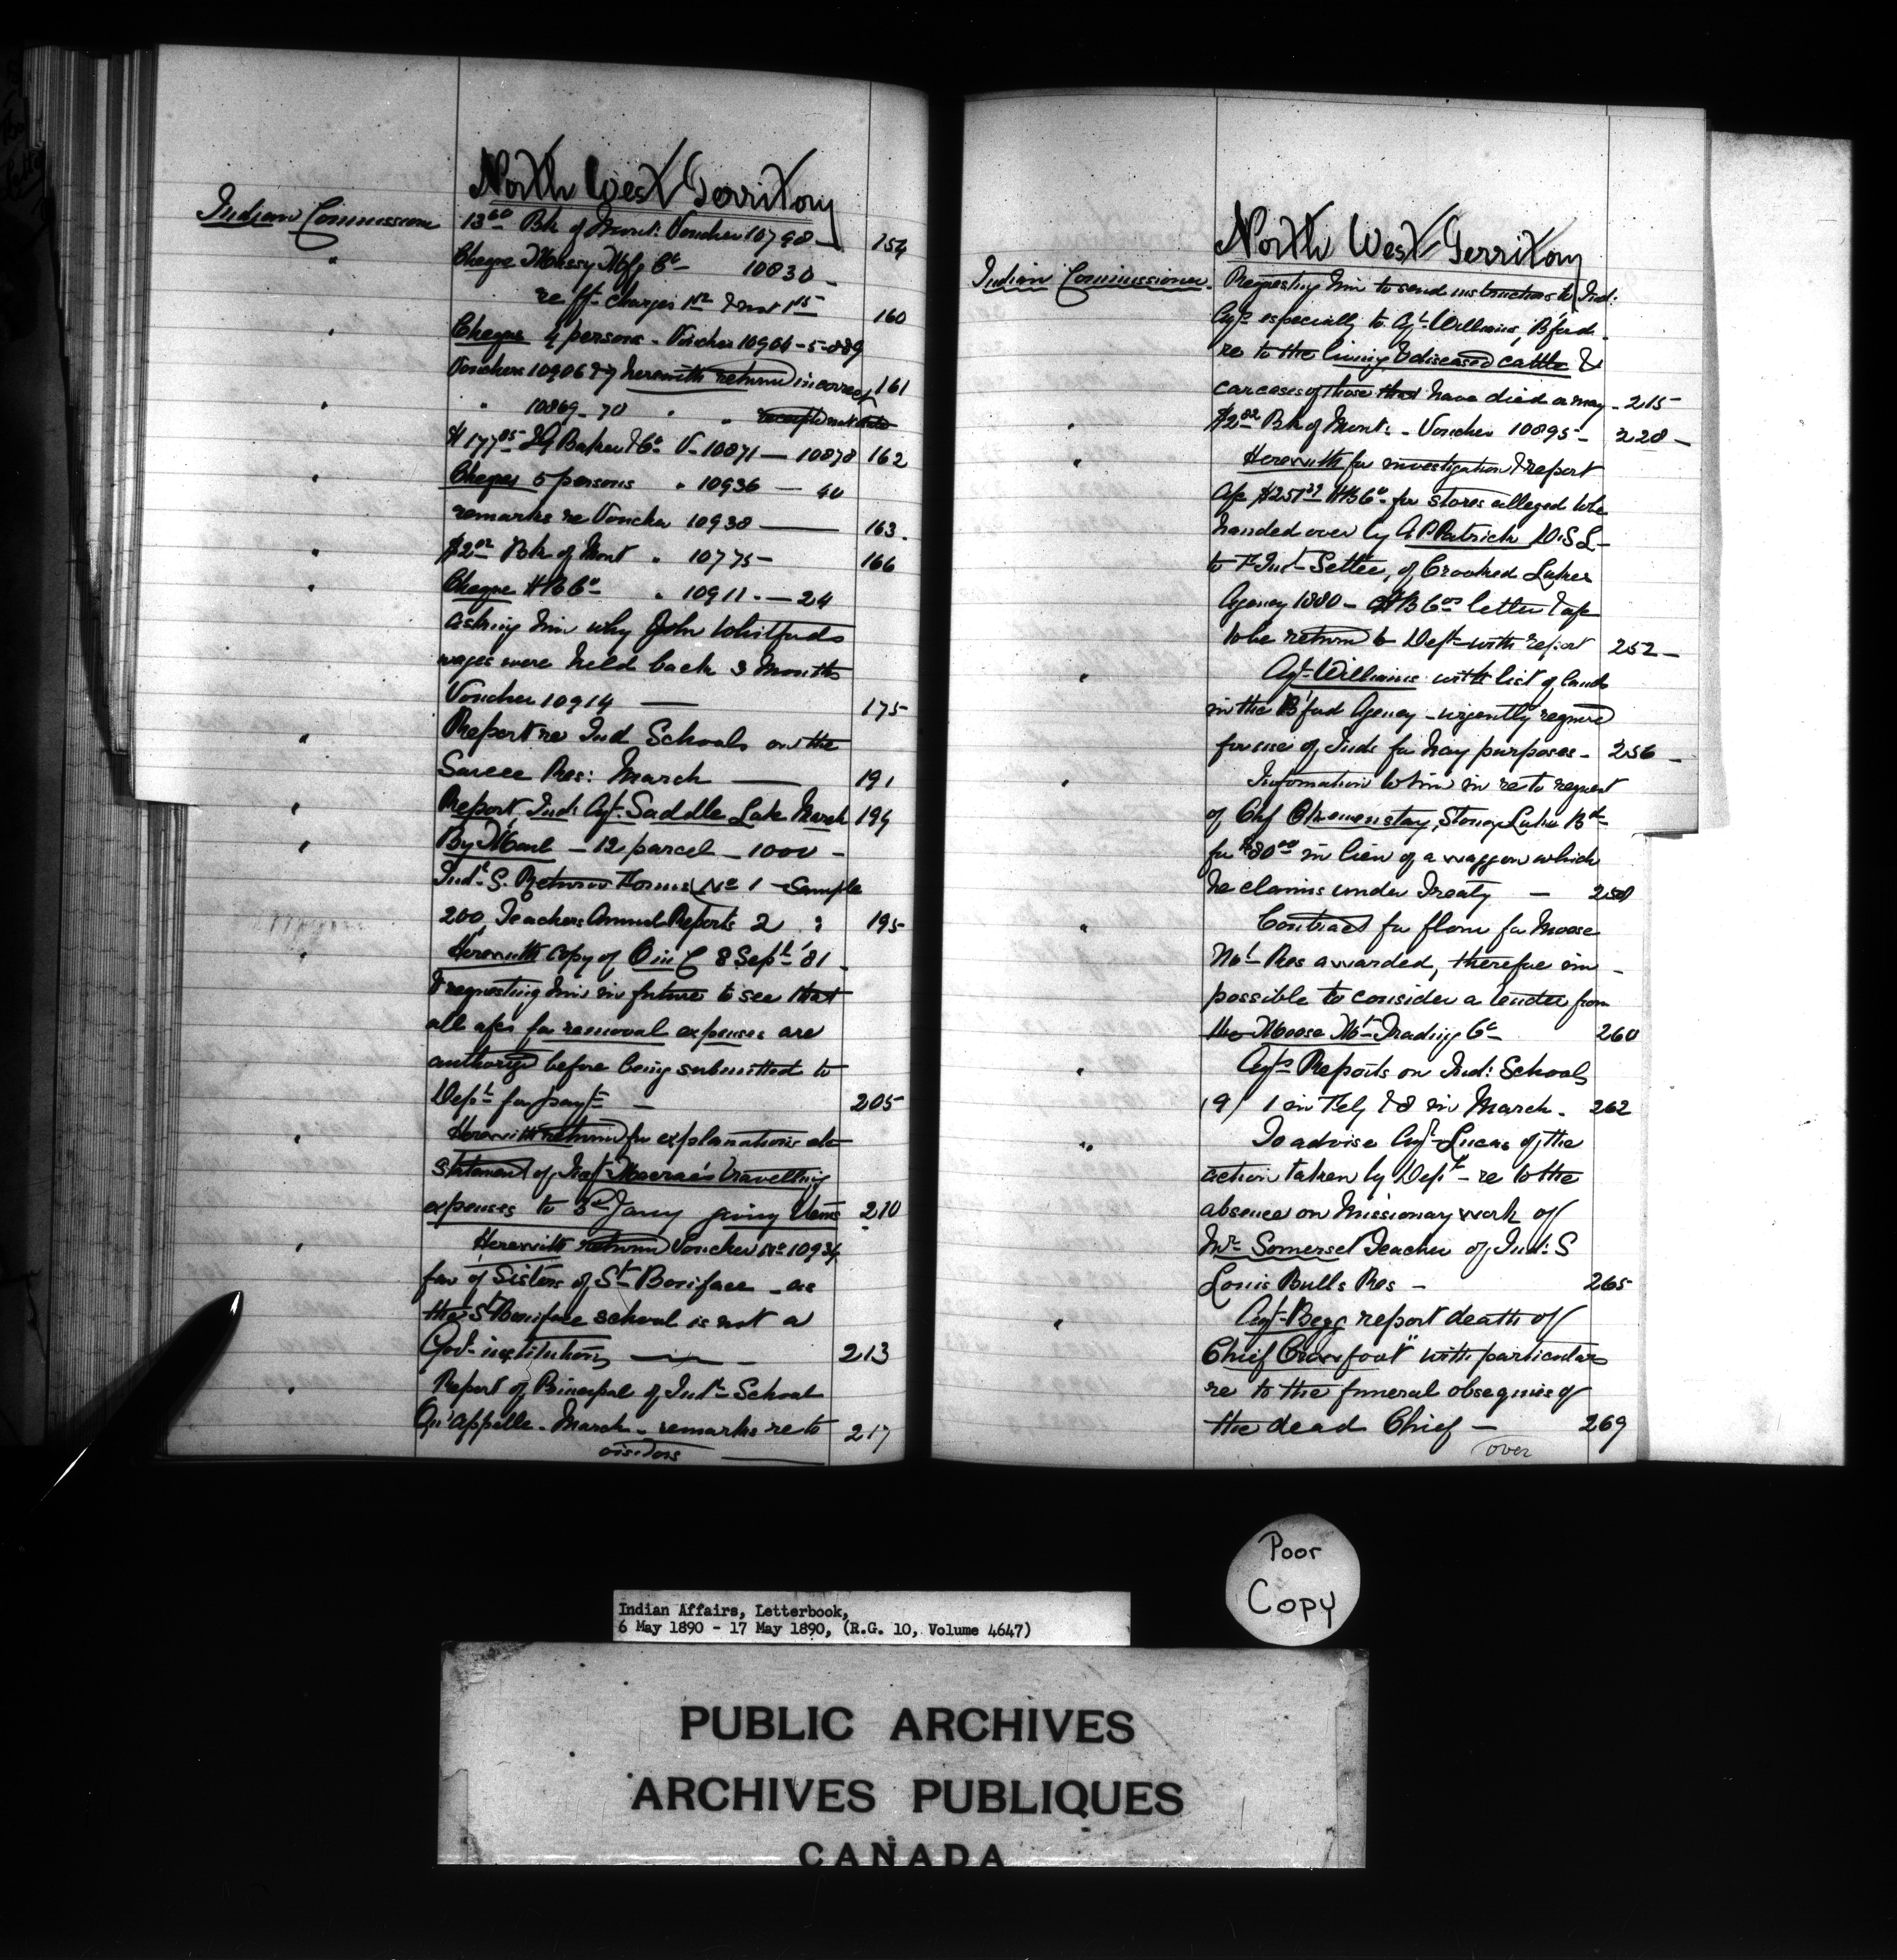 North West Territory
Indian Commissioner 13 60 Bk of Mont: Voucher 10790 — 154
" Cheque Massey Mfg Co — 10830 —
re fft charges No & not 160
" Cheque 4 persons - Voucher 10904-5-889
Vouchers 10906 & 7 herewith return incorrect 161
" " 10869-70 " " receipt not
$177 05 I G Baker & Co V- 10871 — 10878 162
" Cheques 5 persons " 10936 — 40
remarks re Voucher 10938 — 163.
" $2 02 Bk of Mont " 10775 — 166
" Cheque HBCo — " 10911. — 24
asking him why John Whitfords
wages were held back 3 months
Voucher 10914 — 175
" Report re Ind Schools on the
Sarcee Res: March — 191
" Report Ind: Agt. Saddle Lake March 194
" By Mail — 12 parcel — 1000 —
Ind: S. Return Forms No 1 — Sample
200 Teachers Annual Reports 2 " 195
" Herewith copy of O in C 8 Sept '81 —
& requesting him in future to see that
all a/cs for removal expenses are
authorized before being submitted to
Dept for payt — 205
" Herewith return for explanations etc
statement of Insp Macrae's travelling
expenses to 3rd Jany giving items 210
" Herewith return Voucher No 10934
fav of Sisters of St Boniface — as
the St Boniface school is not a
Govt institution — 213
" Report of Principal of Ind: School
Qu'appelle - March - remarks re to 217
visitors —
North West Territory
Indian Commissioner. Requesting him to send instructions to Ind:
Agts especially to Agt Williams, B'ford
re to the living & diseased cattle &
carcases of those that have died or may - 215
" $2 02 Bk of Mont: - Voucher 10895 — 228 —
" Herewith for investigation & report
a/c $251 HBCo for stores alleged to be
handed over by A P Patrick D.S.L —
to F. Ind Settee, of Crooked Lakes
Agency 1880 — HBCos letter & a/c
to be return to Dept with report 252 —
" Agt Williams with list of lands
in the B'ford Agency - urgently required
for use of Inds for hay purposes — 256 —
" Information to him in re to request
of Chf Stoney Lake Bd
for $80 00 in lieu of a waggon which
he claims under Treaty — 258
" Contract for flour for Moose
Mt Res awarded, therefore im —
possible to consider a tender from
the Moose Mt Trading Co 260
" Agts Reports on Ind: Schools
(9) 1 in Feb & 8 in March. 262
" To advise Agt Lucas of the
action taken by Dept — re to the
absence on Missionary work of
Mr Somerset Teacher of Ind: S
Louis Bulls Res — 265
" Agt Begg report death of
Chief Crowfoot" with particulars
re to the funeral obsequies of
the dead Chief — 269
over
Poor
Copy
Indian Affairs, Letterbook,
6 May 1890 - 17 May 1890, (R.G. 10, Volume 4647)
PUBLIC ARCHIVES
ARCHIVES PUBLIQUES
CANADA